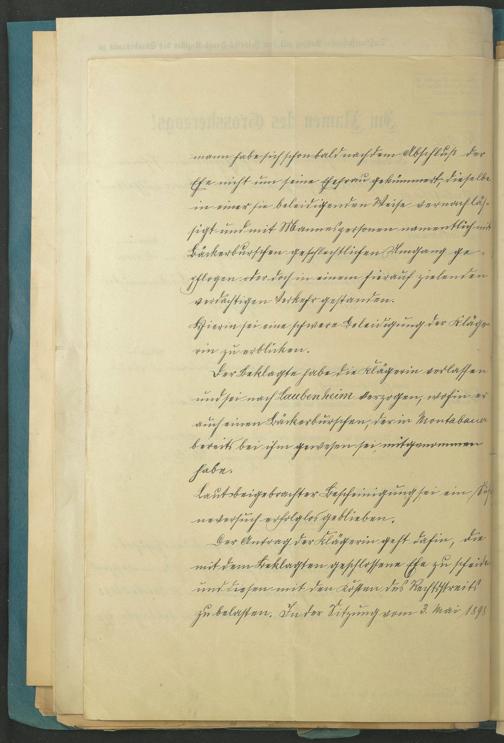 mann habe sich schon bald nach dem Abschluß der
Ehe nicht um seine Ehefrau gekümmert, dieselbe
in einer sie beleidigenden Weise vernachläs-
sigt und mit Mannespersonen namentlich mit
Bäckerburschen geschlechtlichen Umgang ge-
pflogen oder doch in einem hierauf zielenden
verdächtigen Verkehr gestanden.
Hierin sei eine schwere Beleidigung der Kläge-
rin zu erblicken.
Der Beklagte habe die Klägerin verlassen
und sei nach Laubenheim verzogen, wohin er
auch einen Bäckerburschen, der in Montabaur
bereits bei ihm gewesen sei, mitgenommen
habe.
Laut beigebrachter Bescheinigung sei ein Süh-
neversuch erfolglos geblieben.
Der Antrag der Klägerin geht dahin, die
mit dem Beklagten geschlossene Ehe zu scheiden
und diesen mit den Kosten des Rechtsstreits
zu belasten. In der Sitzung vom 3. Mai 1898
Im Namen des Grossherzogs!